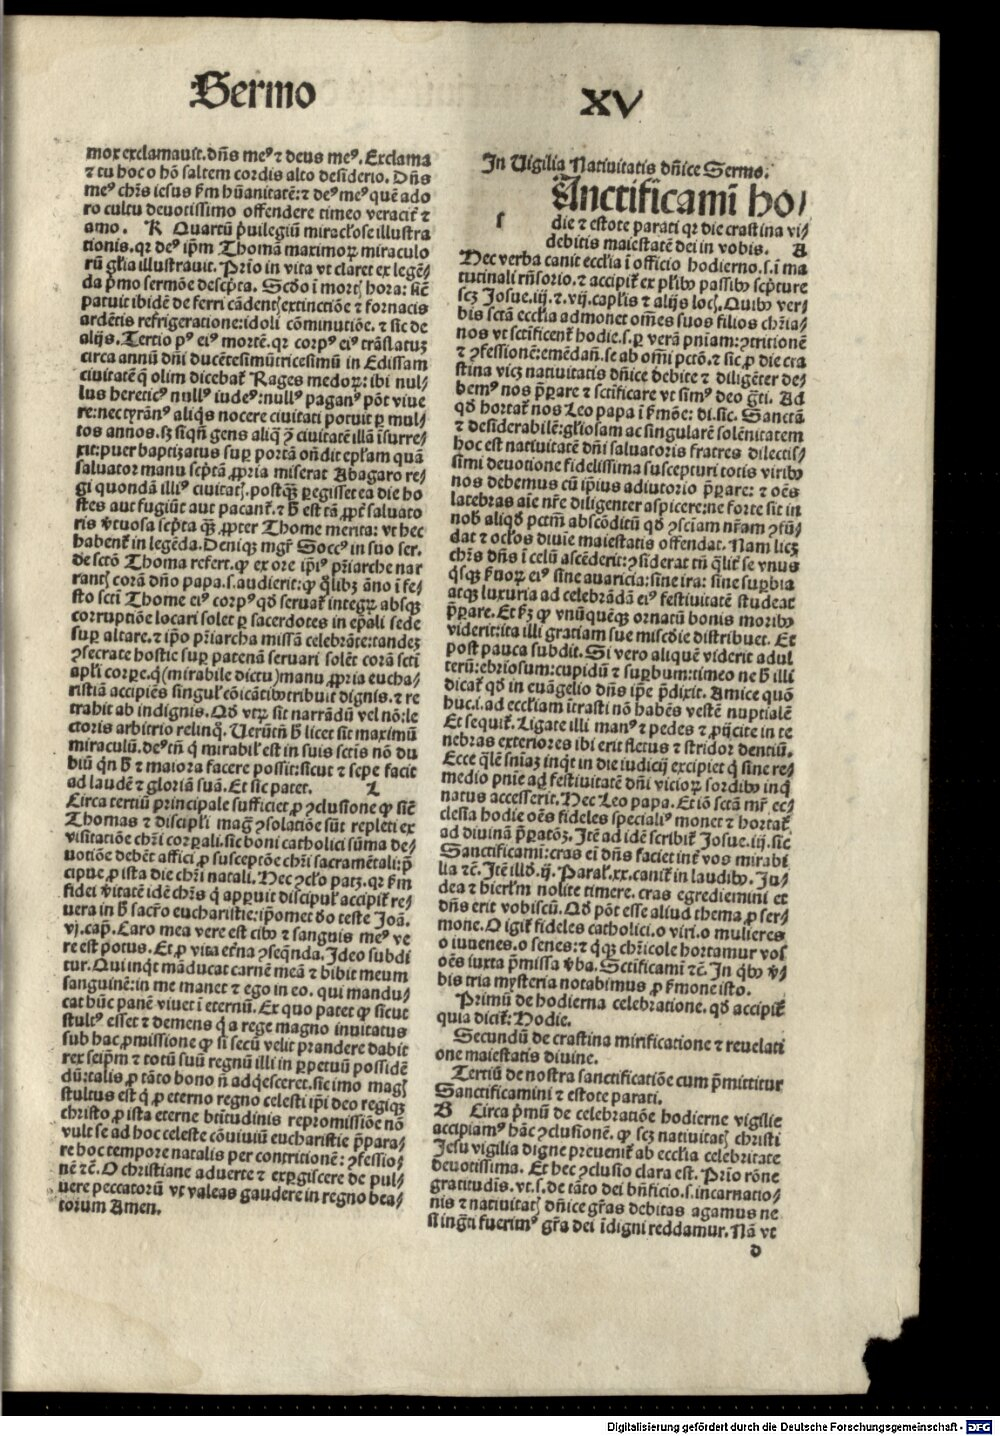 Sermo
XV
mox exclamauit. dñs meꝰ ⁊ deus meꝰ. Exclama
⁊ tu hoc o hõ saltem cordis alto desiderio. Dñs
meꝰ chr̃s iesus ẜm hũanitatẽ: ⁊ deꝰ meꝰ quẽ ado
ro cultu deuotissimo offendere timeo veracit̃ ⁊
amo. K Quartũ p̃uilegiũ miracl̃ose illustra
tionis. qꝛ deꝰ ip̃m Thomã maximoꝝ miraculo
rũ gl̃ia illustrauit. Prĩo in vita vt claret ex legẽ/
da p̃mo sermõe descp̃ta. Scđo ĩ mortꝭ hora: sic̃
patuit ibidẽ de ferri cãdentꝭ extinctiõe ⁊ fornacis
ardẽtis refrigeratione: idoli cõminutiõe. ⁊ sic de
alijs. Tertio pꝰ eiꝰ mortẽ. qꝛ corpꝰ eiꝰ trãslatuꝫ
circa annũ dñi ducẽtesimũtricesimũ in Edissam
ciuitatẽ q̃ olim dicebat̃ Rages medoꝝ: ibi nul/
lus hereticꝰ nullꝰ iudeꝰ: nullꝰ paganꝰ põt viue
re: nec tyrãnꝰ aliq̃s nocere ciuitati potuit ꝑ mul/
tos annos. sꝫ siqñ gens aliq̃ ꝯ̃ ciuitatẽ illã ĩsurre/
xit: puer baptizatus suꝑ portã oñdit ep̃lam quã
saluator manu scp̃tã ꝓpria miserat Abagaro re/
gi quondã illiꝰ ciuitatꝭ. postq̃ꝫ ꝑegisset ea die ho
stes aut fugiũt aut pacant̃. ⁊ h̃ est tã ꝓpt̃ saluato
ris v̓tuosa scp̃ta q̃ꝫ ꝓpter Thome merita: vt hec
habent̃ in legẽda. Deniqꝫ mgr̃ Soccꝰ in suo ser.
de sctõ Thoma refert. ꝙ ex ore ip̃iꝰ pr̃iarche nar
rantꝭ corã dño papa. s. audierit: ꝙ q̃libꝫ ãno ĩ fe/
sto scti̇ Thome eiꝰ corpꝰ qđ seruat̃ integꝝ absqꝫ
corruptiõe locari solet ꝑ sacerdotes in ep̃ali sede
suꝑ altare. ⁊ ip̃o pr̃iarcha missã celebrãte: tandeꝫ
ꝯsecrate hostie suꝑ patenã seruari solẽt corã scti̇
apl̃i corpe. q̃ (mirabile dictu) manu ꝓpria eucha/
ristiã accipiẽs singul̃ cõicãtibꝰ tribuit dignis. ⁊ re
trahit ab indignis. Qđ vtꝝ sit narrãdũ vel nõ: le
ctoris arbitrio relinq̃. Uerũtñ h̃ licet sit maximũ
miraculũ. deꝰ tñ q̃ mirabil̃ est in suis sctis nõ du
biũ qñ h̃ ⁊ maiora facere possit: sicut ⁊ sepe facit
ad laudẽ ⁊ gloriã suã. Et sic patet. L
Circa tertiũ principale sufficiet ꝓ ꝯclusione ꝙ sic̃
Thomas ⁊ discipl̃i mag̃ ꝯsolatiõe sũt repleti ex
visitatiõe chr̃i corꝑali. sic boni catholici sũma de/
uotiõe debẽt affici ꝓ susceptõe chr̃i sacramẽtali: p̃
cipue ꝓ ista die chr̃i natali. Hec ꝯcl̃o patꝫ. qꝛ ẜm
fidei v̓itatẽ idẽ chr̃s q̃ apꝑuit discipul̃ accipit̃ re/
uera in h̃ sacr̃o eucharistie: ip̃omet đo teste Joã.
vj. cap̃. Caro mea vere est cibꝰ ⁊ sanguis meꝰ ve
re est potus. Et ꝓ vita et̃na ꝯseq̃nda. Ideo subdi
tur. Qui inq̃t mãducat carnẽ meã ⁊ bibit meum
sanguinẽ: in me manet ⁊ ego in eo. qui mandu/
cat hũc panẽ viuet ĩ eternũ. Ex quo patet ꝙ sicut
stultꝰ esset ⁊ demens q̃ a rege magno inuitatus
sub hac ꝓmissione ꝙ si secũ velit prandere dabit
rex seip̃m ⁊ totũ suũ regnũ illi in ꝑpetuũ possidẽ
dũ: talis ꝓ tãto bono ñ adq̃esceret. sic imo magꝭ
stultus est q̃ ꝓ eterno regno celesti ip̃i deo regiqꝫ
christo ꝓ ista eterne btĩtudinis repromissiõe nõ
vult se ad hoc celeste cõuiuiũ eucharistie p̃para/
re hoc tempore natalis per contritionẽ: ꝯfessio/
nẽ ⁊c̃. O christiane aduerte ⁊ exꝑgiscere de pul/
uere peccatorũ vt valeas gaudere in regno bea/
torum Amen.
In Uigilia Natiuitatis dñice Sermo.
s
Anctificami̇ ho/
die ⁊ estote parati qꝛ die crastina vi/
debitis maiestatẽ dei in vobis. A
Hec verba canit eccl̃ia ĩ officio hodierno. s. ĩ ma
tutinali rñsorio. ⁊ accipit̃ ex pl̃ibꝰ passibꝰ scp̃ture
scꝫ Josue. iij. ⁊. vij. capl̃is ⁊ alijs locꝭ. Quibꝰ ver/
bis sctã eccl̃ia admonet om̃es suos filios chr̃ia/
nos vt sctificent̃ hodie. s. ꝑ verã pñiam: ꝯtritionẽ
⁊ ꝯfessionẽ: emẽdañ. se ab om̃i pctõ. ⁊ sic ꝓ die cra
stina vicꝫ natiuitatis dñice debite ⁊ diligẽter de/
bemꝰ nos p̃parare ⁊ sctificare vt simꝰ deo g̃ti. Ad
qđ hortat̃ nos Leo papa ĩ ẜmõe: di. sic. Sanctã
⁊ desiderabilẽ: gl̃iosam ac singularẽ solẽnitatem
hoc est natiuitatẽ dñi saluatoris fratres dilectis/
simi deuotione fidelissima suscepturi totis viribꝰ
nos debemus cũ ip̃ius adiutorio p̃parare: ⁊ oẽs
latebras aĩe nr̃e diligenter aspicere: ne forte sit in
nob̃ aliqđ pctm̃ abscõditũ qđ ꝯsciam nr̃am ꝯfũ/
dat ⁊ ocl̃os diuĩe maiestatis offendat. Nam licꝫ
chr̃s dñs ĩ celũ ascẽderit: ꝯsiderat tñ q̃lit̃ se vnus
q̃sqꝫ ẜuoꝝ eiꝰ sine auaricia: sine ira: sine suꝑbia
atqꝫ luxuria ad celebrãdã eiꝰ festiuitatẽ studeat
p̃parare. Et ẜꝫ ꝙ vnũquẽqꝫ ornatũ bonis moribꝰ
viderit: ita illi gratiam sue mie distribuet. Et
post pauca subdit. Si vero aliquẽ viderit adul
terũ: ebriosum: cupidũ ⁊ suꝑbum: timeo ne h̃ illi
dicat̃ qđ in euãgelio dñs ip̃e p̃dixit. Amice quõ
huc. i. ad eccl̃iam ĩtrasti nõ habẽs vestẽ nuptialẽ
Et sequit̃. Ligate illi manꝰ ⁊ pedes ⁊ ꝓijcite in te
nebras exteriores ibi erit fletus ⁊ stridor dentiũ.
Ecce q̃lẽ sñiaꝫ inq̃t in die iudicij excipiet q̃ sine re/
medio pñie ad festiuitatẽ dñi vicioꝝ sordibꝰ inq̃
natus accesserit. Hec Leo papa. Et iõ sctã mr̃ ec/
clesia hodie oẽs fideles specialiꝰ monet ⁊ hortat̃
ad diuinã p̃paratõꝫ. Itẽ ad idẽ scribit̃ Josue. iij. sic
Sanctificami̇: cras ei̇ dñs faciet int̃ vos mirabi
lia ⁊c̃. Itẽ illđ. ij. Paral̃. xx. canit̃ in laudibꝰ. Ju/
dea ⁊ hierl̃m nolite timere. cras egrediemini et
dñs erit vobiscũ. Qđ põt esse aliud thema ꝓ ser/
mone. O igit̃ fideles catholici. o viri. o mulieres
o iuuenes. o senes: ⁊ q̃qꝫ chr̃icole hortamur vos
oẽs iuxta p̃missa v̓ba. Sctificami̇ ⁊c̃. In q̃bꝰ v̓/
bis tria mysteria notabimus ꝓ ẜmone isto.
Primũ de hodierna celebratione. qđ accipit̃
quia dicit̃: Hodie.
Secundũ de crastina mirificatione ⁊ reuelati
one maiestatis diuine.
Tertiũ de nostra sanctificatiõe cum p̃mittitur
Sanctificamini ⁊ estote parati.
B Circa p̃mũ de celebratiõe hodierne vigilie
accipiamꝰ hãc ꝯclusionẽ. ꝙ scꝫ natiuitatꝭ christi
Jesu vigilia digne preuenit̃ ab eccl̃ia celebritate
deuotissima. Et hec ꝯclusio clara est. Prĩo rõne
gratitudĩs. vt. s. de tãto dei bñficio. s. incarnatio/
nis ⁊ natiuitatꝭ dñice gr̃as debitas agamus ne
si ing̃ti fuerimꝰ gr̃a dei ĩdigni reddamur. Nã vt
d
Digitalisierung gefördert durch die Deutsche Forschungsgemeinschaft - DFG